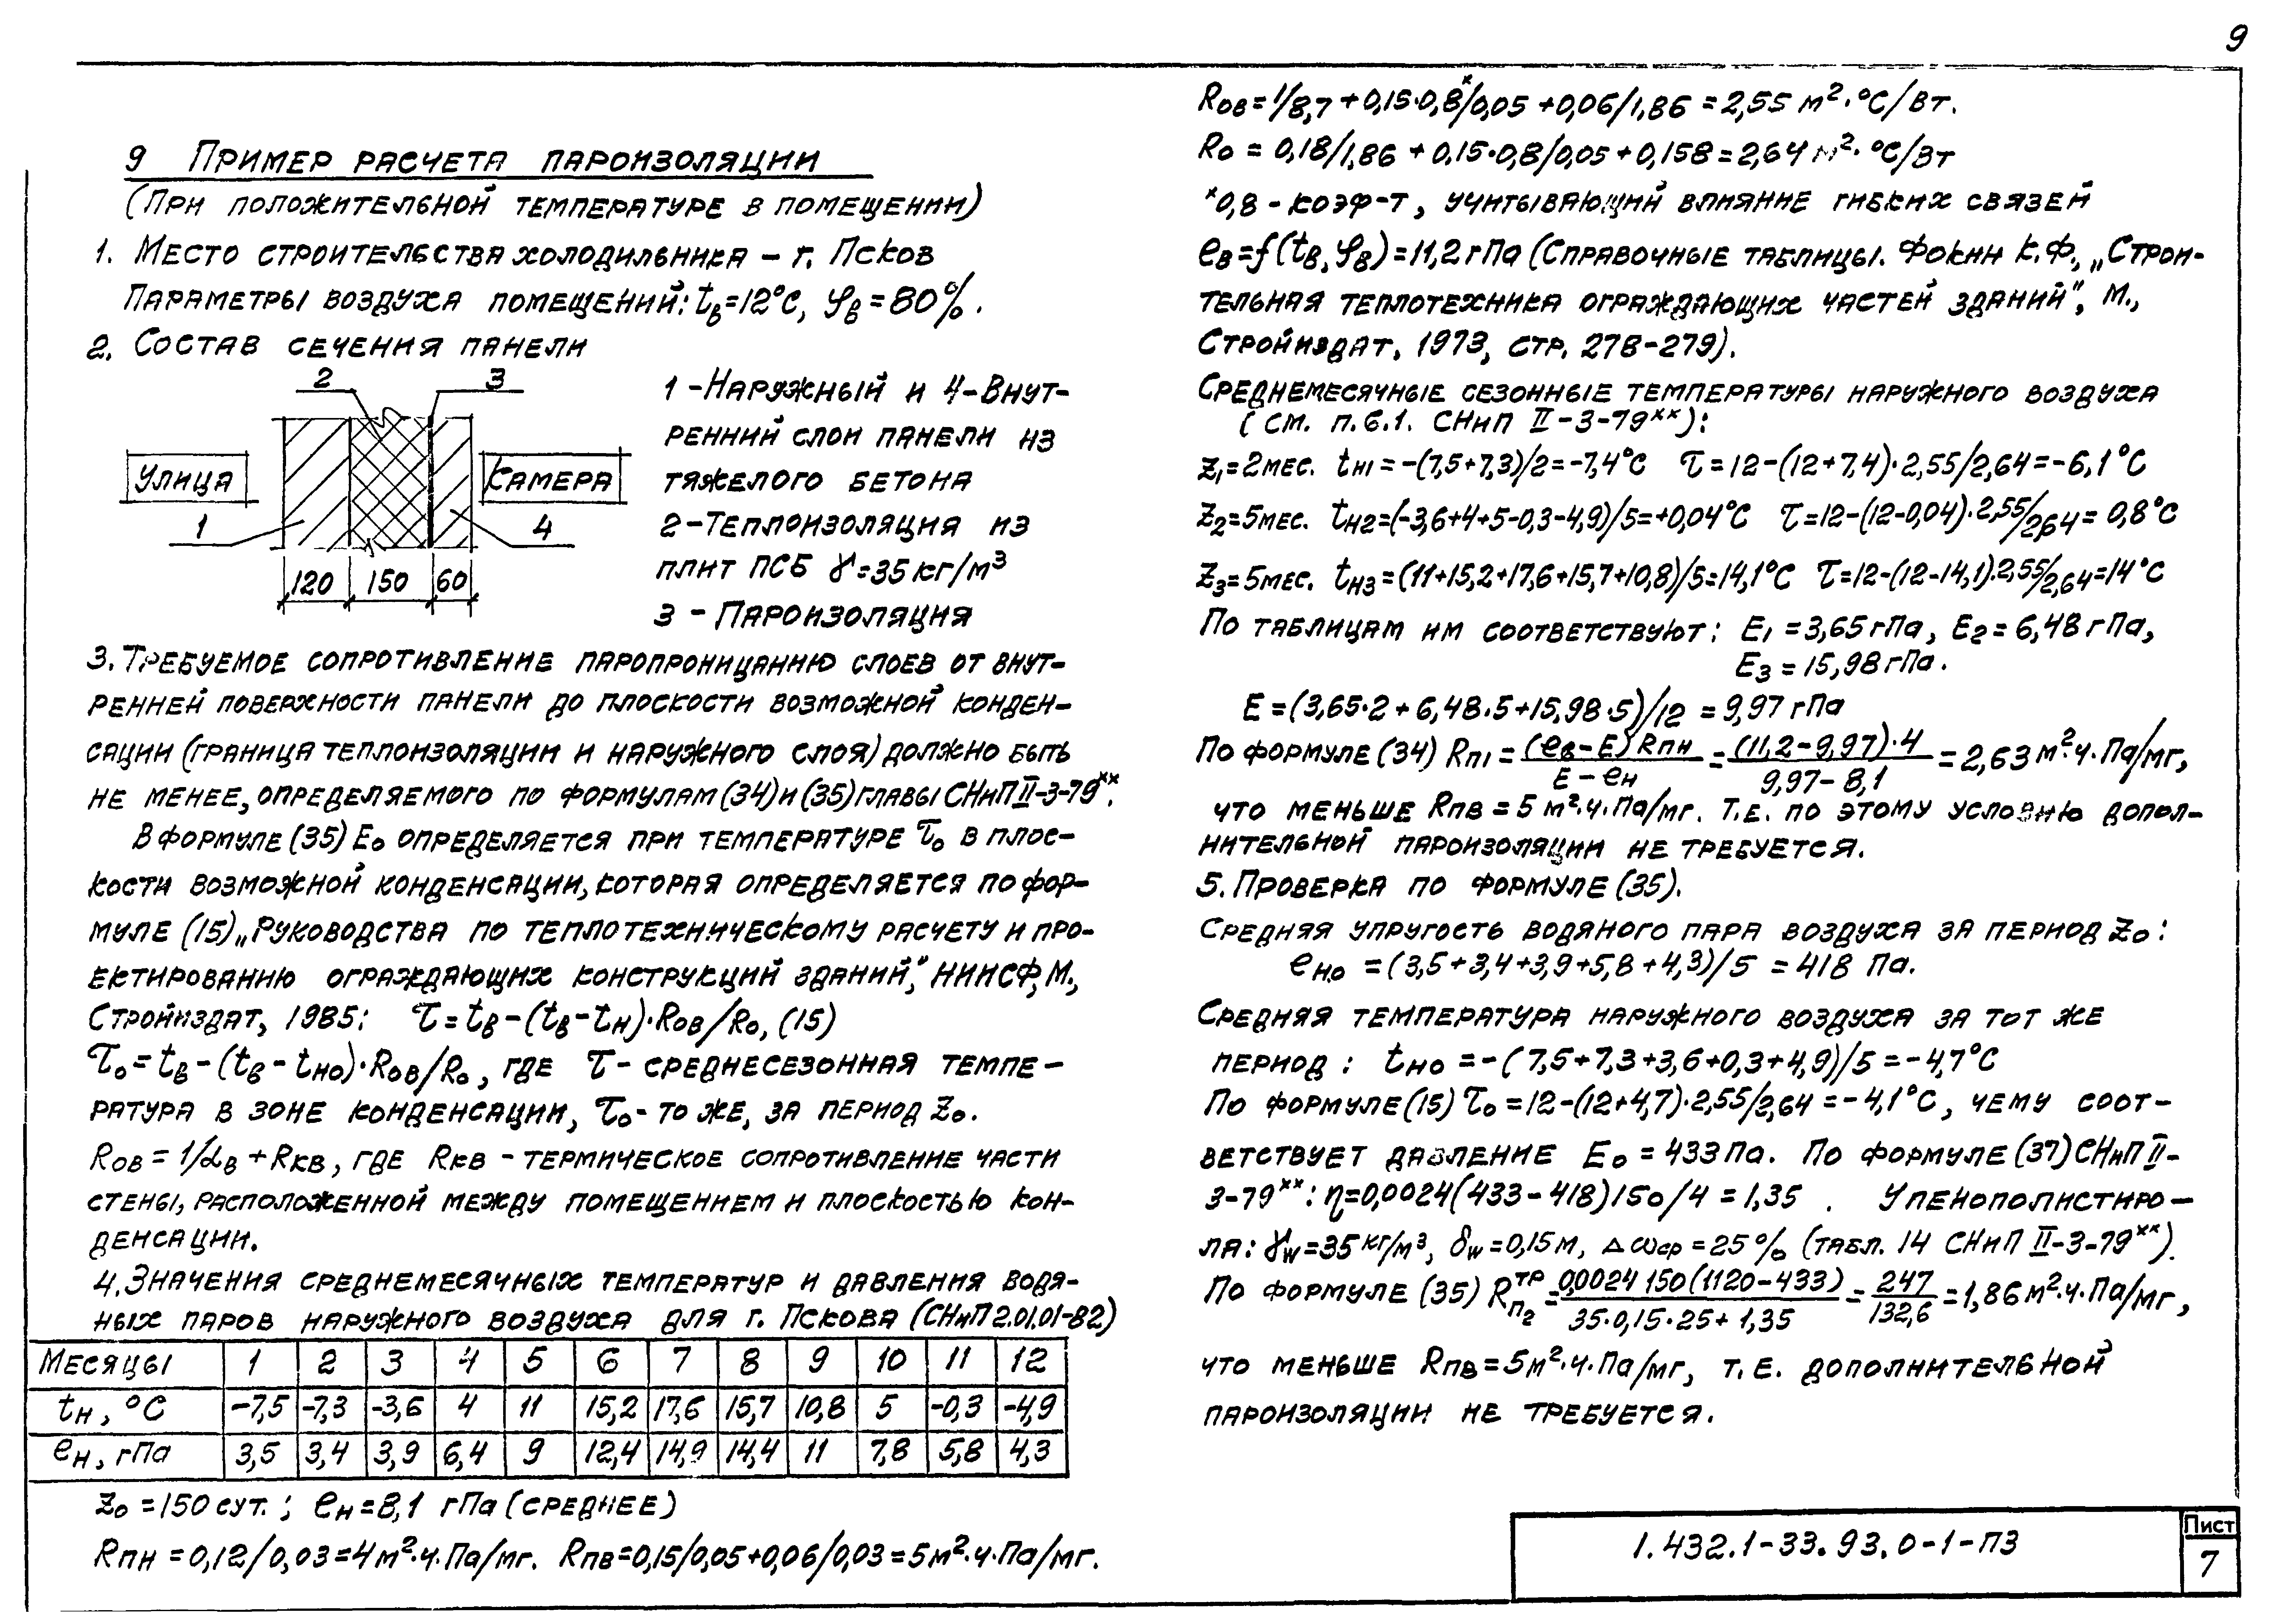 9
9 Пример расчета пароизоляции
(При положительной температуре в помещении)
1. Место строительства холодильника – г. Псков
Параметры воздуха помещений: tв=12°С, φв=80%.
2. Состав сечения панели
2 3
Улица
Камера
1 4
120 150 60
1 – Наружный и 4 – Внут-
ренний слои панели из
тяжелого бетона
2 – Теплоизоляция из
плит ПСБ γ=35кг/м³
3 – Пароизоляция
3. Требуемое сопротивление паропроницанию слоев от внут-
ренней поверхности панели до плоскости возможной конден-
сации (граница теплоизоляции и наружного слоя) должно быть
не менее, определяемого по формулам (34) и (35) главы СНиП II-3-79хх.
В формуле (35) Ео определяется при температуре τо в плос-
кости возможной конденсации, которая определяется по фор-
муле (15) „Руководства по теплотехническому расчету и про-
ектированию ограждающих конструкций зданий", НИИСФ, М.,
Стройиздат, 1985: τ=tв-(tв-tн)·Rов/Rо, (15)
τо=tв-(tв-tно)·Rов/Rо, где τ - среднесезонная темпе-
ратура в зоне конденсации, τо- то же, за период Zо.
Rов = 1/αв + Rкв, где Rкв - термическое сопротивление части
стены, расположенной между помещением и плоскостью кон-
денсации.
4. Значения среднемесячных температур и давления водя-
ных паров наружного воздуха для г. Пскова (СНиП 2.01.01-82)
Месяцы 1 2 3 4 5 6 7 8 9 10 11 12
tн, °С -7,5 -7,3 -3,6 4 11 15,2 17,6 15,7 10,8 5 -0,3 -4,9
ен, гПа 3,5 3,4 3,9 6,4 9 12,4 14,9 14,4 11 7,8 5,8 4,3
Zо =150 сут. ; ен=8,1 гПа (среднее)
Rпн = 0,12/0,03=4м²·ч·Па/мг. Rпв=0,15/0,05+0,06/0,03=5м²·ч·Па/мг.
Rов=1/8,7+0,15·0,8х/0,05+0,06/1,86=2,55 м²·°С/Вт.
Rо = 0,18/1,86 + 0,15·0,8/0,05+0,158=2,64 м²·°С/Вт
х0,8 - коэф-т, учитывающий влияние гибких связей
ев=f(tв,φв)=11,2гПа (Справочные таблицы. Фокин К.Ф., „Строи-
тельная теплотехника ограждающих частей зданий", М.,
Стройиздат, 1973, стр. 278-279).
Среднемесячные сезонные температуры наружного воздуха
(см. п.6.1. СНиП II-3-79хх):
Z1=2мес. tн1=-(7,5+7,3)/2=-7,4°С τ=12-(12+7,4)·2,55/2,64=-6,1°С
Z2=5мес. tн2=(-3,6+4+5-0,3-4,9)/5=+0,04°С τ=12-(12-0,04)·2,55/2,64=0,8°С
Z3=5мес. tн3=(11+15,2+17,6+15,7+10,8)/5=14,1°С τ=12-(12-14,1)·2,55/2,64=14°С
По таблицам им соответствуют: Е1=3,65гПа, Е2=6,48гПа,
Е3=15,98гПа.
Е=(3,65·2+6,48·5+15,98·5)/12=9,97гПа
По формуле (34) Rп1=(ев-Е)Rпн/Е-ен=(11,2-9,97)·4/9,97-8,1=2,63м²·ч·Па/мг,
что меньше Rпв=5м²·ч·Па/мг. Т.е. по этому условию допол-
нительной пароизоляции не требуется.
5. Проверка по формуле (35).
Средняя упругость водяного пара воздуха за период Zо:
ено=(3,5+3,4+3,9+5,8+4,3)/5=418 Па.
Средняя температура наружного воздуха за тот же
период: tно=-(7,5+7,3+3,6+0,3+4,9)/5=-4,7°С
По формуле (15) τо=12-(12+4,7)·2,55/2,64=-4,1°С, чему соот-
ветствует давление Ео=433Па. По формуле (37) СНиП II-
3-79хх: η=0,0024(433-418)150/4=1,35 . У пенополистиро-
ла: γw=35кг/м³, δw=0,15м, Δωср=25% (табл. 14 СНиП II-3-79хх).
По формуле (35) Rп2тр=0,0024 150(1120-433)/35·0,15·25+1,35=247/132,6=1,86м²·ч·Па/мг,
что меньше Rпв=5м²·ч·Па/мг, т.е. дополнительной
пароизоляции не требуется.
1.432.1-33.93.0-1-ПЗ
Лист
7